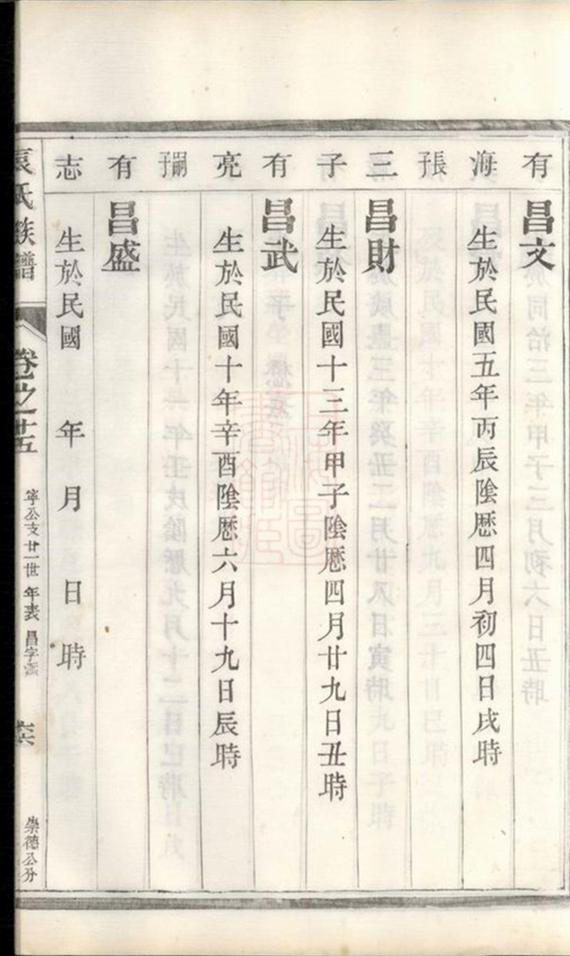 有 昌文
海 生於民國五年丙辰陰歷四月初四日戌時
張
三 昌財
子 生於民國十三年甲子陰歷四月廿九日丑時
有 昌武
亮 生於民國十年辛酉陰歷六月十九日辰時
嗣
有 昌盛
志 生於民國 年 月 日 時
袁氏族譜 卷之廿五 寧公支廿一世年表 昌字派 崇德公分